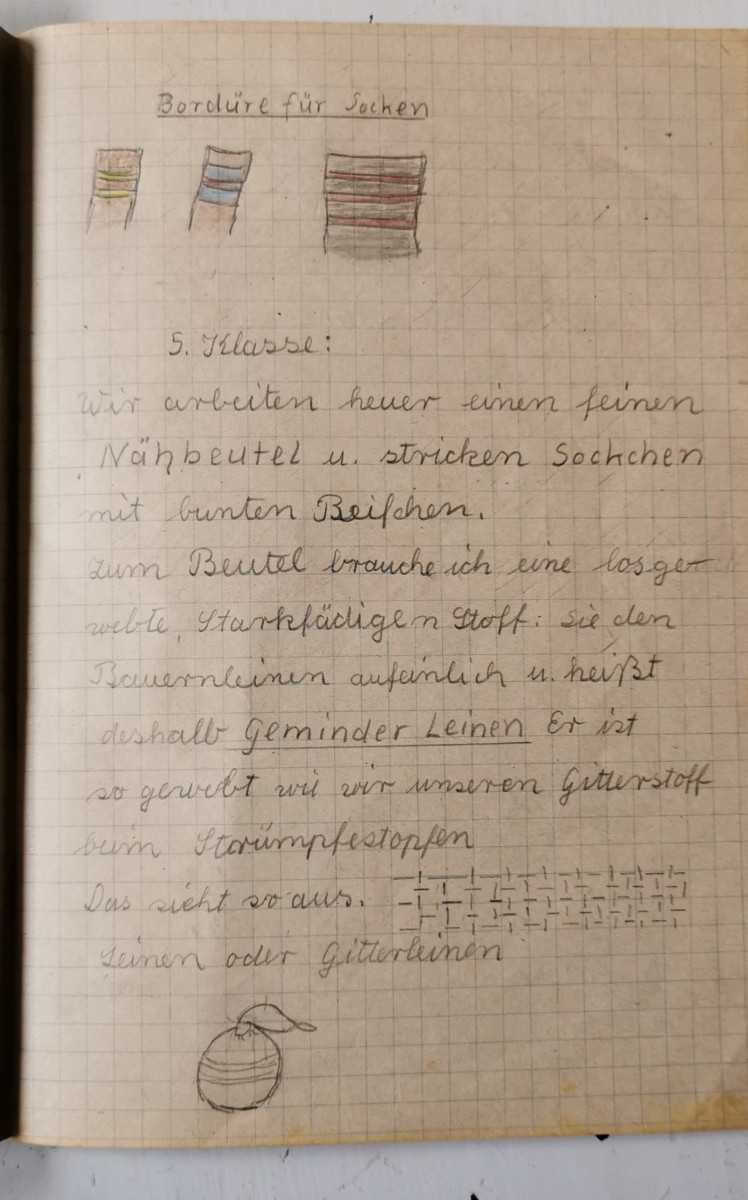 Bordüre für Socken
5. Klasse:
Wir arbeiten heuer einen feinen
Nähbeutel u. stricken Sockchen
mit bunten
zum Beutel brauche ich eine losge-
webte, Starkfädigen Stoff: sie den
Bauernleinen u. heißt
deshalb Geminder Leinen Er ist
so gewebt wie wir unseren Gitterstoff
beim Strümpfestopfen
Das sieht so aus.
Leinen oder Gitterleinen